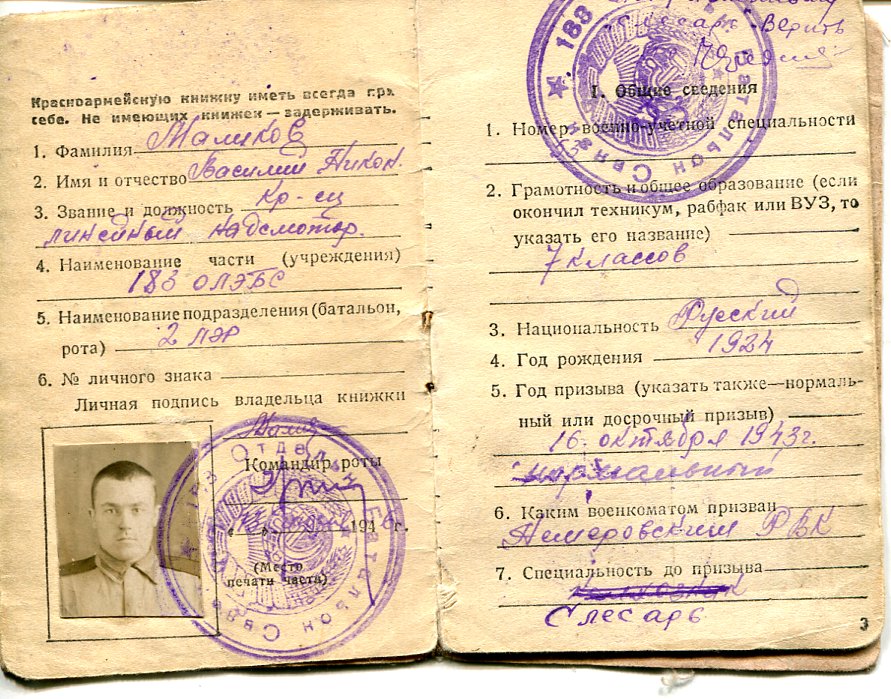 Красноармейскую книжку иметь всегда при
себе. Не имеющих книжек — задерживать.
1. Фамилия Маликов
2. Имя и отчество Василий Никон.
3. Звание и должность кр-ец
линейный надсмотр.
4. Наименование части (учреждения)
183 ОЛЭБС
5. Наименование подразделения (батальон,
рота) 2 лэр
6. № личного знака
Личная подпись владельца книжки
Малик
Командир роты
194 г.
(Место
печати части)
183 Отде Батальон Связи
слесарь. Верить
183 Батальон Связи
I. Общие сведения
1. Номер военно-учетной специальности
2. Грамотность и общее образование (если
окончил техникум, рабфак или ВУЗ, то
указать его название)
7 классов
3. Национальность Русский
4. Год рождения 1924
5. Год призыва (указать также—нормаль-
ный или досрочный призыв)
16 октября 1943г.
нормальный
6. Каким военкоматом призван
Немеровский РВК
7. Специальность до призыва
Слесарь
3